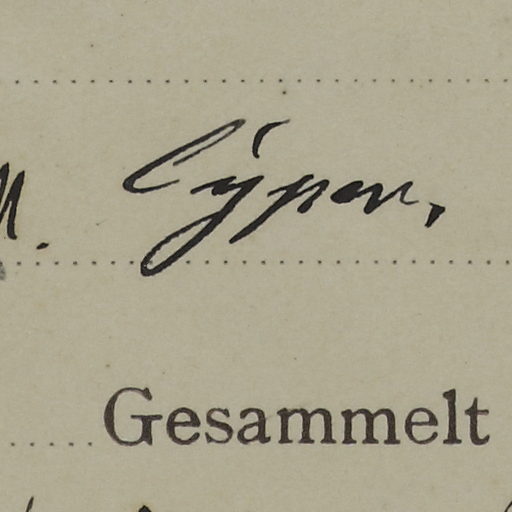 Cypern,
Gesammelt